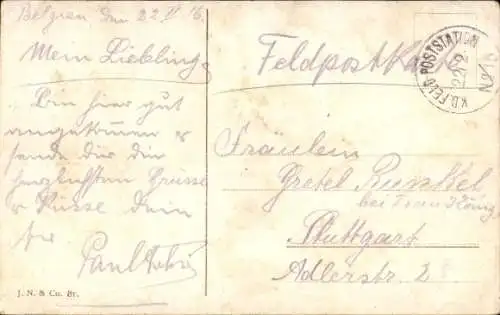 Belgien den 22.II.16.
Mein Liebling
Bin hier gut
angekommen &
sende dir die
herzlichsten Grüsse
& Küsse dein
Paul
J. N. & Co. Br.
Feldpostkarte
K.D. FELD-POSTSTATION
22/2
No
Fräulein
Gretel Runkel
bei Frau König
Stuttgart
Adlerstr. 2